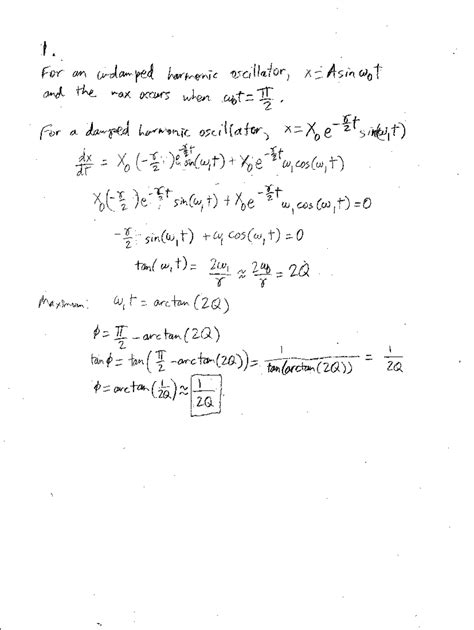 1.
For an undamped harmonic oscillator, x = A sin ω₀t
and the max occurs when ω₀t = π/2.
For a damped harmonic oscillator, x = X₀ e^(-γ/2 t) sin(ω₁t)
dx/dt = X₀ (-γ/2) e^(-γ/2 t) sin(ω₁t) + X₀ e^(-γ/2 t) ω₁ cos(ω₁t)
X₀(-γ/2) e^(-γ/2 t) sin(ω₁t) + X₀ e^(-γ/2 t) ω₁ cos(ω₁t) = 0
-γ/2 sin(ω₁t) + ω₁ cos(ω₁t) = 0
tan(ω₁t) = 2ω₁/γ ≈ 2ω₀/γ = 2Q
Maximum: ω₁t = arctan(2Q)
ϕ = π/2 - arctan(2Q)
tanϕ = tan(π/2 - arctan(2Q)) = 1/tan(arctan(2Q)) = 1/2Q
ϕ = arctan(1/2Q) ≈ 1/2Q